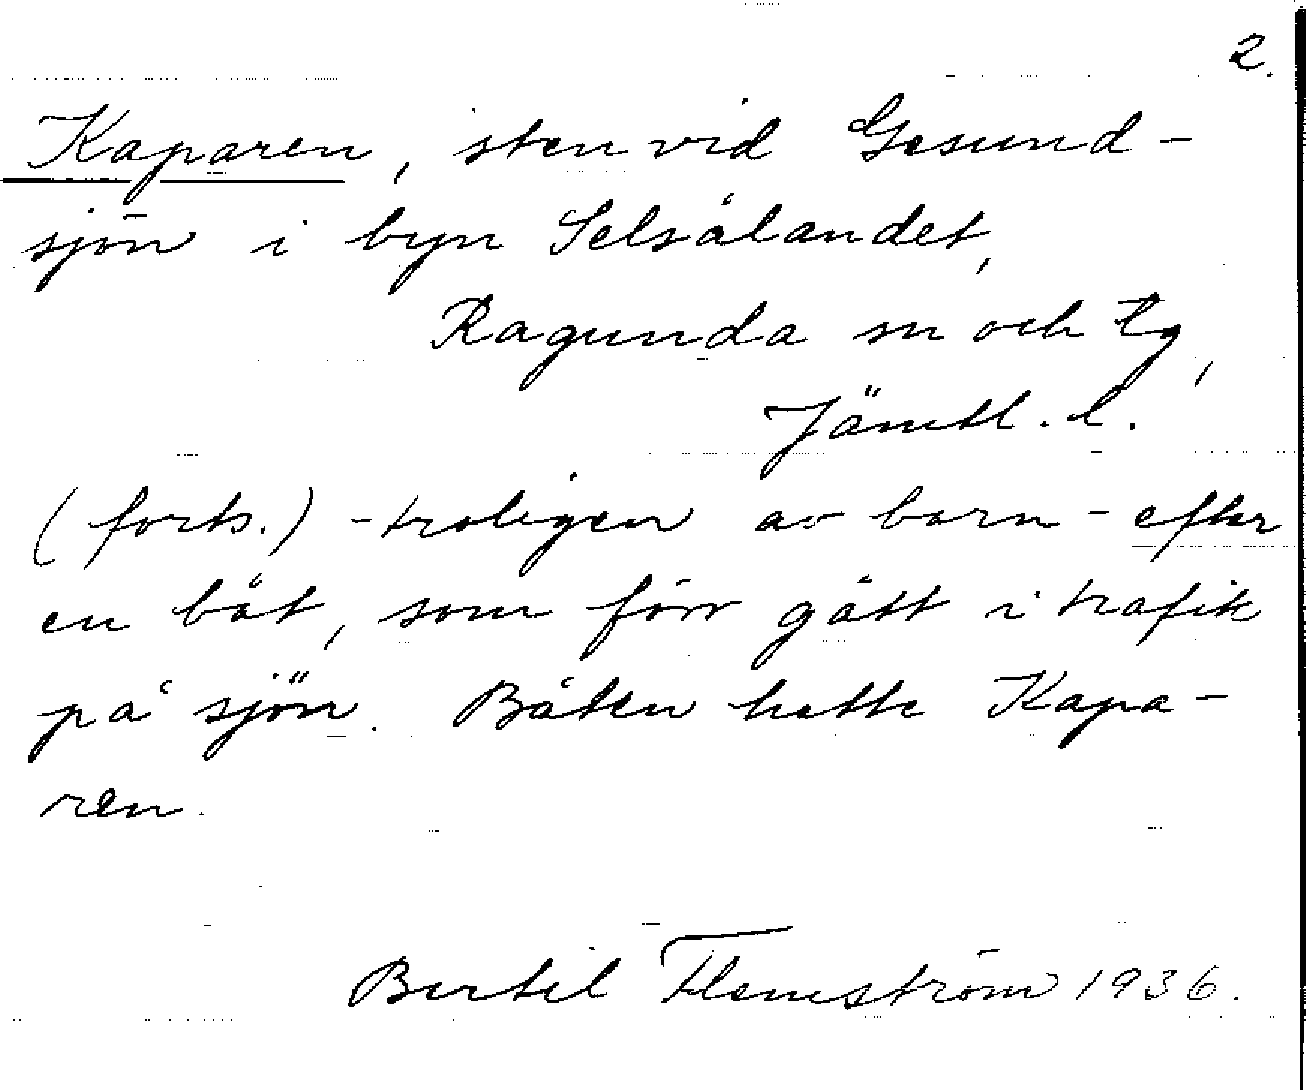 2.
Kaparen, sten vid Gesund-
sjön i byn Selsålandet,
Ragunda sn och tg,
Jämtl. l.
(forts.) - troligen av barn - efter
en båt, som förr gått i trafik
på sjön. Båten hette Kapa-
ren.
Bertil Flemström 1936.